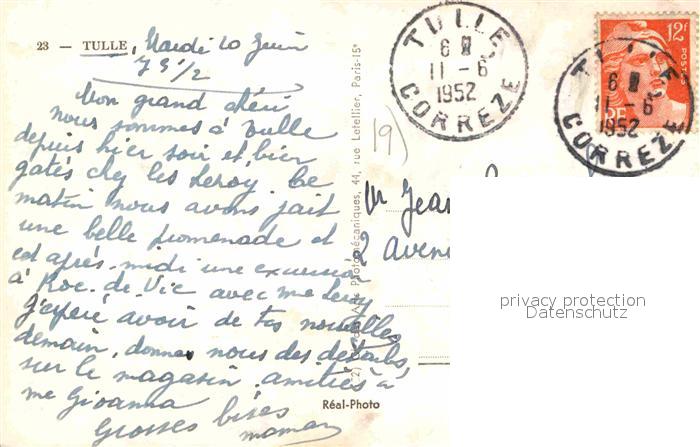 23 — TULLE, Mardi 10 Juin
7 h 1/2
Mon grand chéri
nous sommes à Tulle
depuis hier soir et bien
gatés chez les Leroy. Ce
matin nous avons fait
une belle promenade et
cet après-midi une excursion
à Roc. de. Vic avec me Leroy
J'espère avoir de tes nouvelles
demain, donnes nous des détails,
sur le magasin. amitiés à
me Gioanna
Grosses bises
maman
Réal-Photo
Photomécaniques, 44, rue Letellier, Paris-15e
19)
TULLE
6 H
11-6
1952
CORREZE
12F
POSTES
RF
TULLE
6 H
11-6
1952
CORREZE
M Jean
2 Aven
privacy protection
Datenschutz